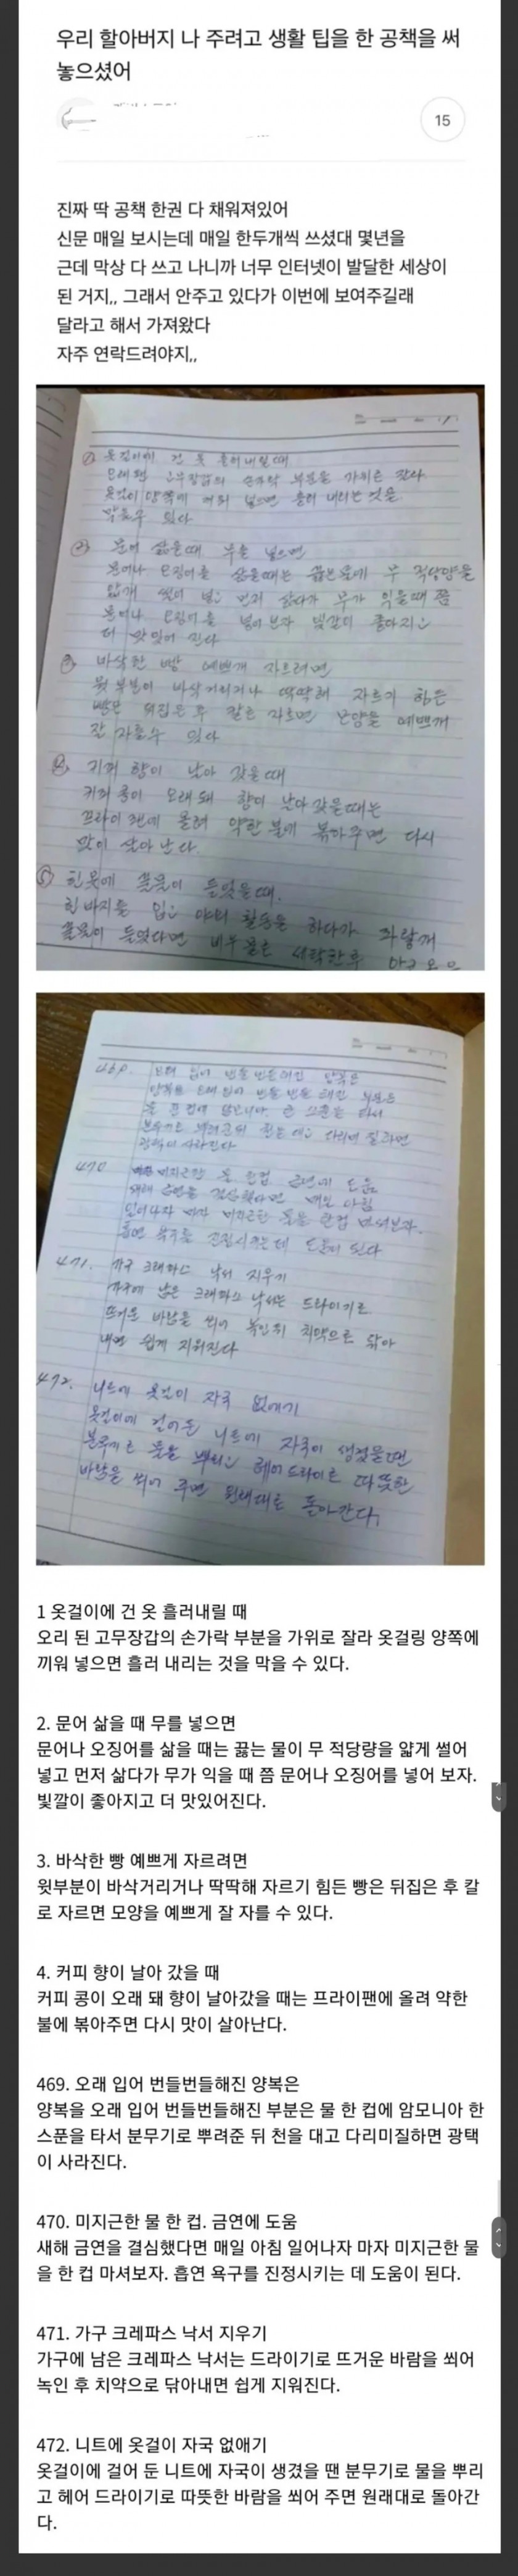 우리 할아버지 나 주려고 생활 팁을 한 공책을 써
놓으셨어
15
진짜 딱 공책 한권 다 채워져있어
신문 매일 보시는데 매일 한두개씩 쓰셨대 몇년을
근데 막상 다 쓰고 나니까 너무 인터넷이 발달한 세상이
된 거지,, 그래서 안주고 있다가 이번에 보여주길래
달라고 해서 가져왔다
자주 연락드려야지,,
① 옷걸이에 건 옷 흘러내릴때
오래된 고무장갑의 손가락 부분을 가위로 잘라
옷걸이 양쪽에 끼워 넣으면 흘러 내리는 것을
막을수 있다
② 문어 삶을때 무를 넣으면
문어나 오징어를 삶을때는 끓는물에 무 적당양을
얇게 썰어 넣고 먼저 삶다가 무가 익을때 쯤
문어나 오징어를 넣어 보자 빛갈이 좋아지고
더 맛있어 진다
③ 바삭한 빵 예쁘게 자르려면
윗 부분이 바삭거리거나 딱딱해 자르기 힘든
빵은 뒤집은 후 칼로 자르면 모양을 예쁘게
잘 자를수 있다
④ 커피 향이 날아 갔을때
커피 콩이 오래돼 향이 날아갔을때는
프라이팬에 올려 약한 불에 볶아주면 다시
맛이 살아난다.
⑤ 흰옷에 풀물이 들었을때.
흰바지를 입고 야외 활동을 하다가 파랗게
풀물이 들었다면 비누물로 세탁한후
469. 오래 입어 번들번들해진 양복은
양복을 오래입어 번들번들해진 부분은
물 한컵에 암모니아 한 스푼을 타서
분무기로 뿌려준뒤 천을 대고 다리미질하면
광택이 사라진다
470 미지근한 물 한컵 금연에 도움
새해 금연을 결심했다면 매일 아침
일어나자 마자 미지근한 물을 한컵 마셔보자.
흡연 욕구를 진정시키는데 도움이 된다
471. 가구 크레파스 낙서 지우기
가구에 남은 크레파스 낙서는 드라이기로
뜨거운 바람을 쐬어 녹인뒤 치약으로 닦아
내면 쉽게 지워진다
472. 니트에 옷걸이 자국 없애기
옷걸이에 걸어둔 니트에 자국이 생겼을땐
분무기로 물을 뿌리고 헤어드라이로 따뜻한
바람을 쐬어 주면 원래대로 돌아간다.
1 옷걸이에 건 옷 흘러내릴 때
오리 된 고무장갑의 손가락 부분을 가위로 잘라 옷걸링 양쪽에
끼워 넣으면 흘러 내리는 것을 막을 수 있다.
2. 문어 삶을 때 무를 넣으면
문어나 오징어를 삶을 때는 끓는 물이 무 적당량을 얇게 썰어
넣고 먼저 삶다가 무가 익을 때 쯤 문어나 오징어를 넣어 보자.
빛깔이 좋아지고 더 맛있어진다.
3. 바삭한 빵 예쁘게 자르려면
윗부분이 바삭거리거나 딱딱해 자르기 힘든 빵은 뒤집은 후 칼
로 자르면 모양을 예쁘게 잘 자를 수 있다.
4. 커피 향이 날아 갔을 때
커피 콩이 오래 돼 향이 날아갔을 때는 프라이팬에 올려 약한
불에 볶아주면 다시 맛이 살아난다.
469. 오래 입어 번들번들해진 양복은
양복을 오래 입어 번들번들해진 부분은 물 한 컵에 암모니아 한
스푼을 타서 분무기로 뿌려준 뒤 천을 대고 다리미질하면 광택
이 사라진다.
470. 미지근한 물 한 컵. 금연에 도움
새해 금연을 결심했다면 매일 아침 일어나자 마자 미지근한 물
을 한 컵 마셔보자. 흡연 욕구를 진정시키는 데 도움이 된다.
471. 가구 크레파스 낙서 지우기
가구에 남은 크레파스 낙서는 드라이기로 뜨거운 바람을 쐬어
녹인 후 치약으로 닦아내면 쉽게 지워진다.
472. 니트에 옷걸이 자국 없애기
옷걸이에 걸어 둔 니트에 자국이 생겼을 땐 분무기로 물을 뿌리
고 헤어 드라이기로 따뜻한 바람을 쐬어 주면 원래대로 돌아간
다.